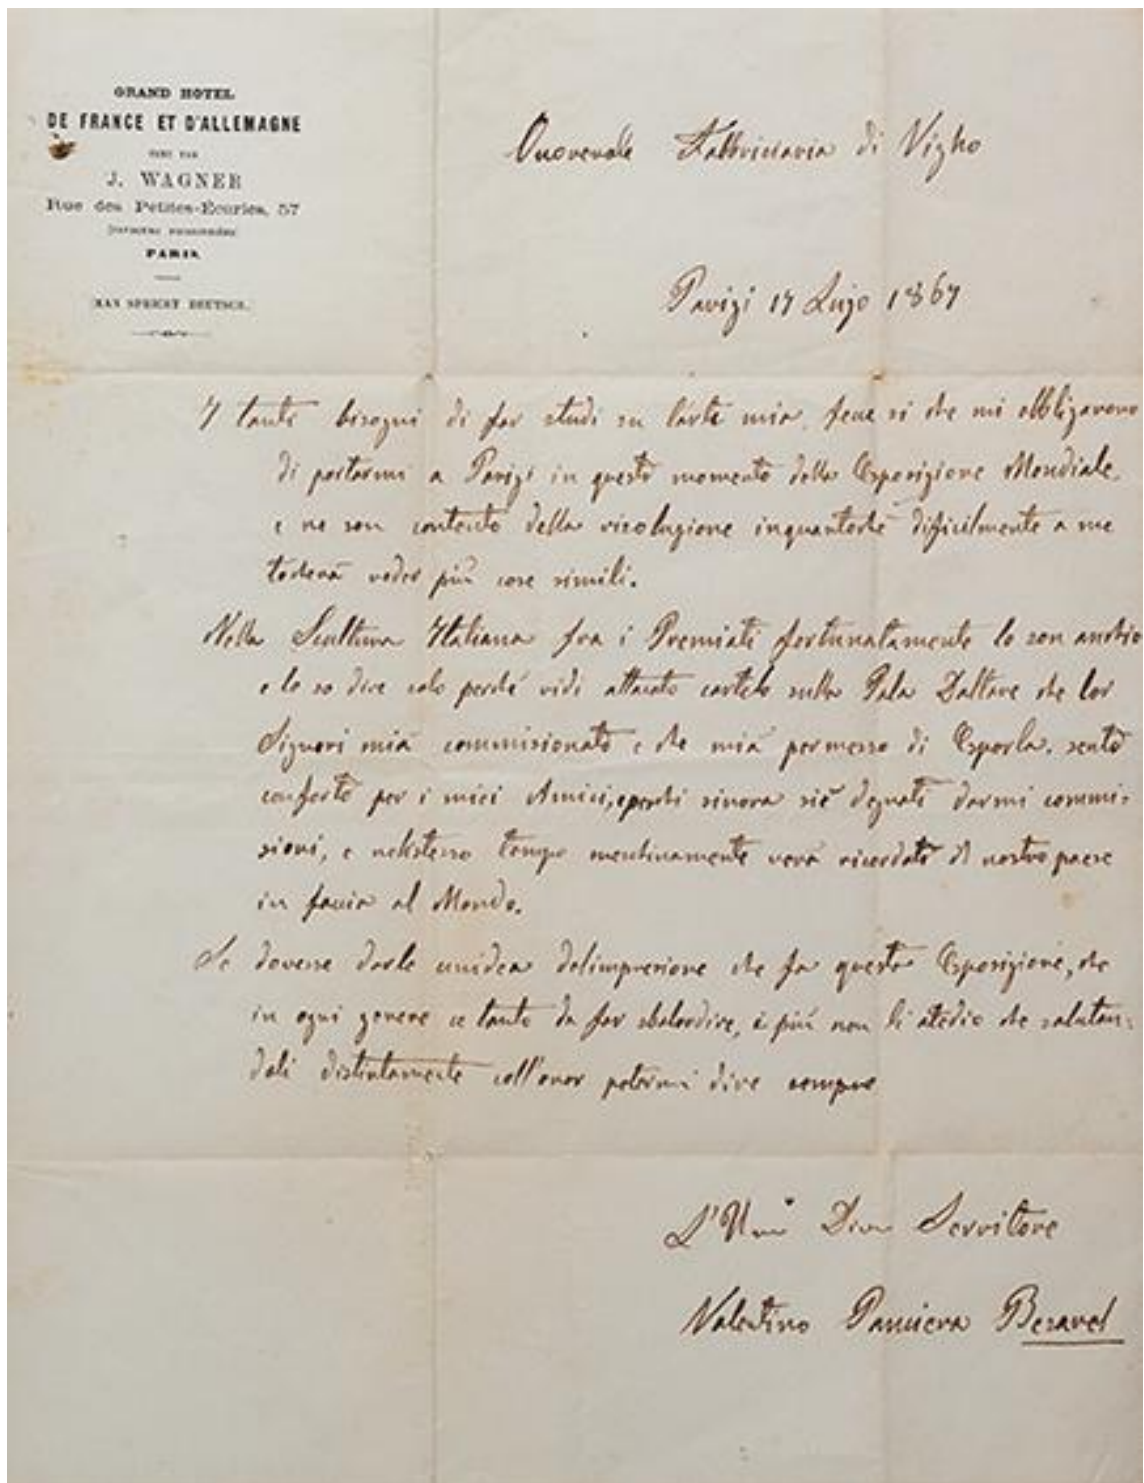 GRAND HOTEL
DE FRANCE ET D'ALLEMAGNE
TENU PAR
J. WAGNER
Rue des Petites-Écuries, 57
PARIS
MAN SPRICHT DEUTSCH.
Onorevole Fabbriciaria di Vigho
Parigi 17 Lujo 1867
I tanti bisogni di far studi su l'arte mia, fece si che mi obbligarono
di portarmi a Parigi in questo momento della Esposizione Mondiale,
e ne son contento della risoluzione inquantoché difficilmente a me
tocherà veder più cose simili.
Nella Scultura Italiana fra i Premiati fortunatamente lo son anchio
e lo so dire solo perché vidi attacato cartelo sulla Pala Daltare che lor
Signori mià commisionato e che mià permesso di Esporla. sento
conforto per i miei Amici, eperchi sinora siè degnati darmi commi-
sioni, e nelistesso tempo mentinamente verà ricordato il nostro paese
in facia al Mondo.
Se dovesse darle unidea delimpresione che fa questa Esposizione, che
in ogni genere ce tanto da far sbalordire, i più non li atedio che salutan-
doli distintamente coll'onor potermi dire sempre
L'Umo Divo Servitore
Valentino Panciera Besarel